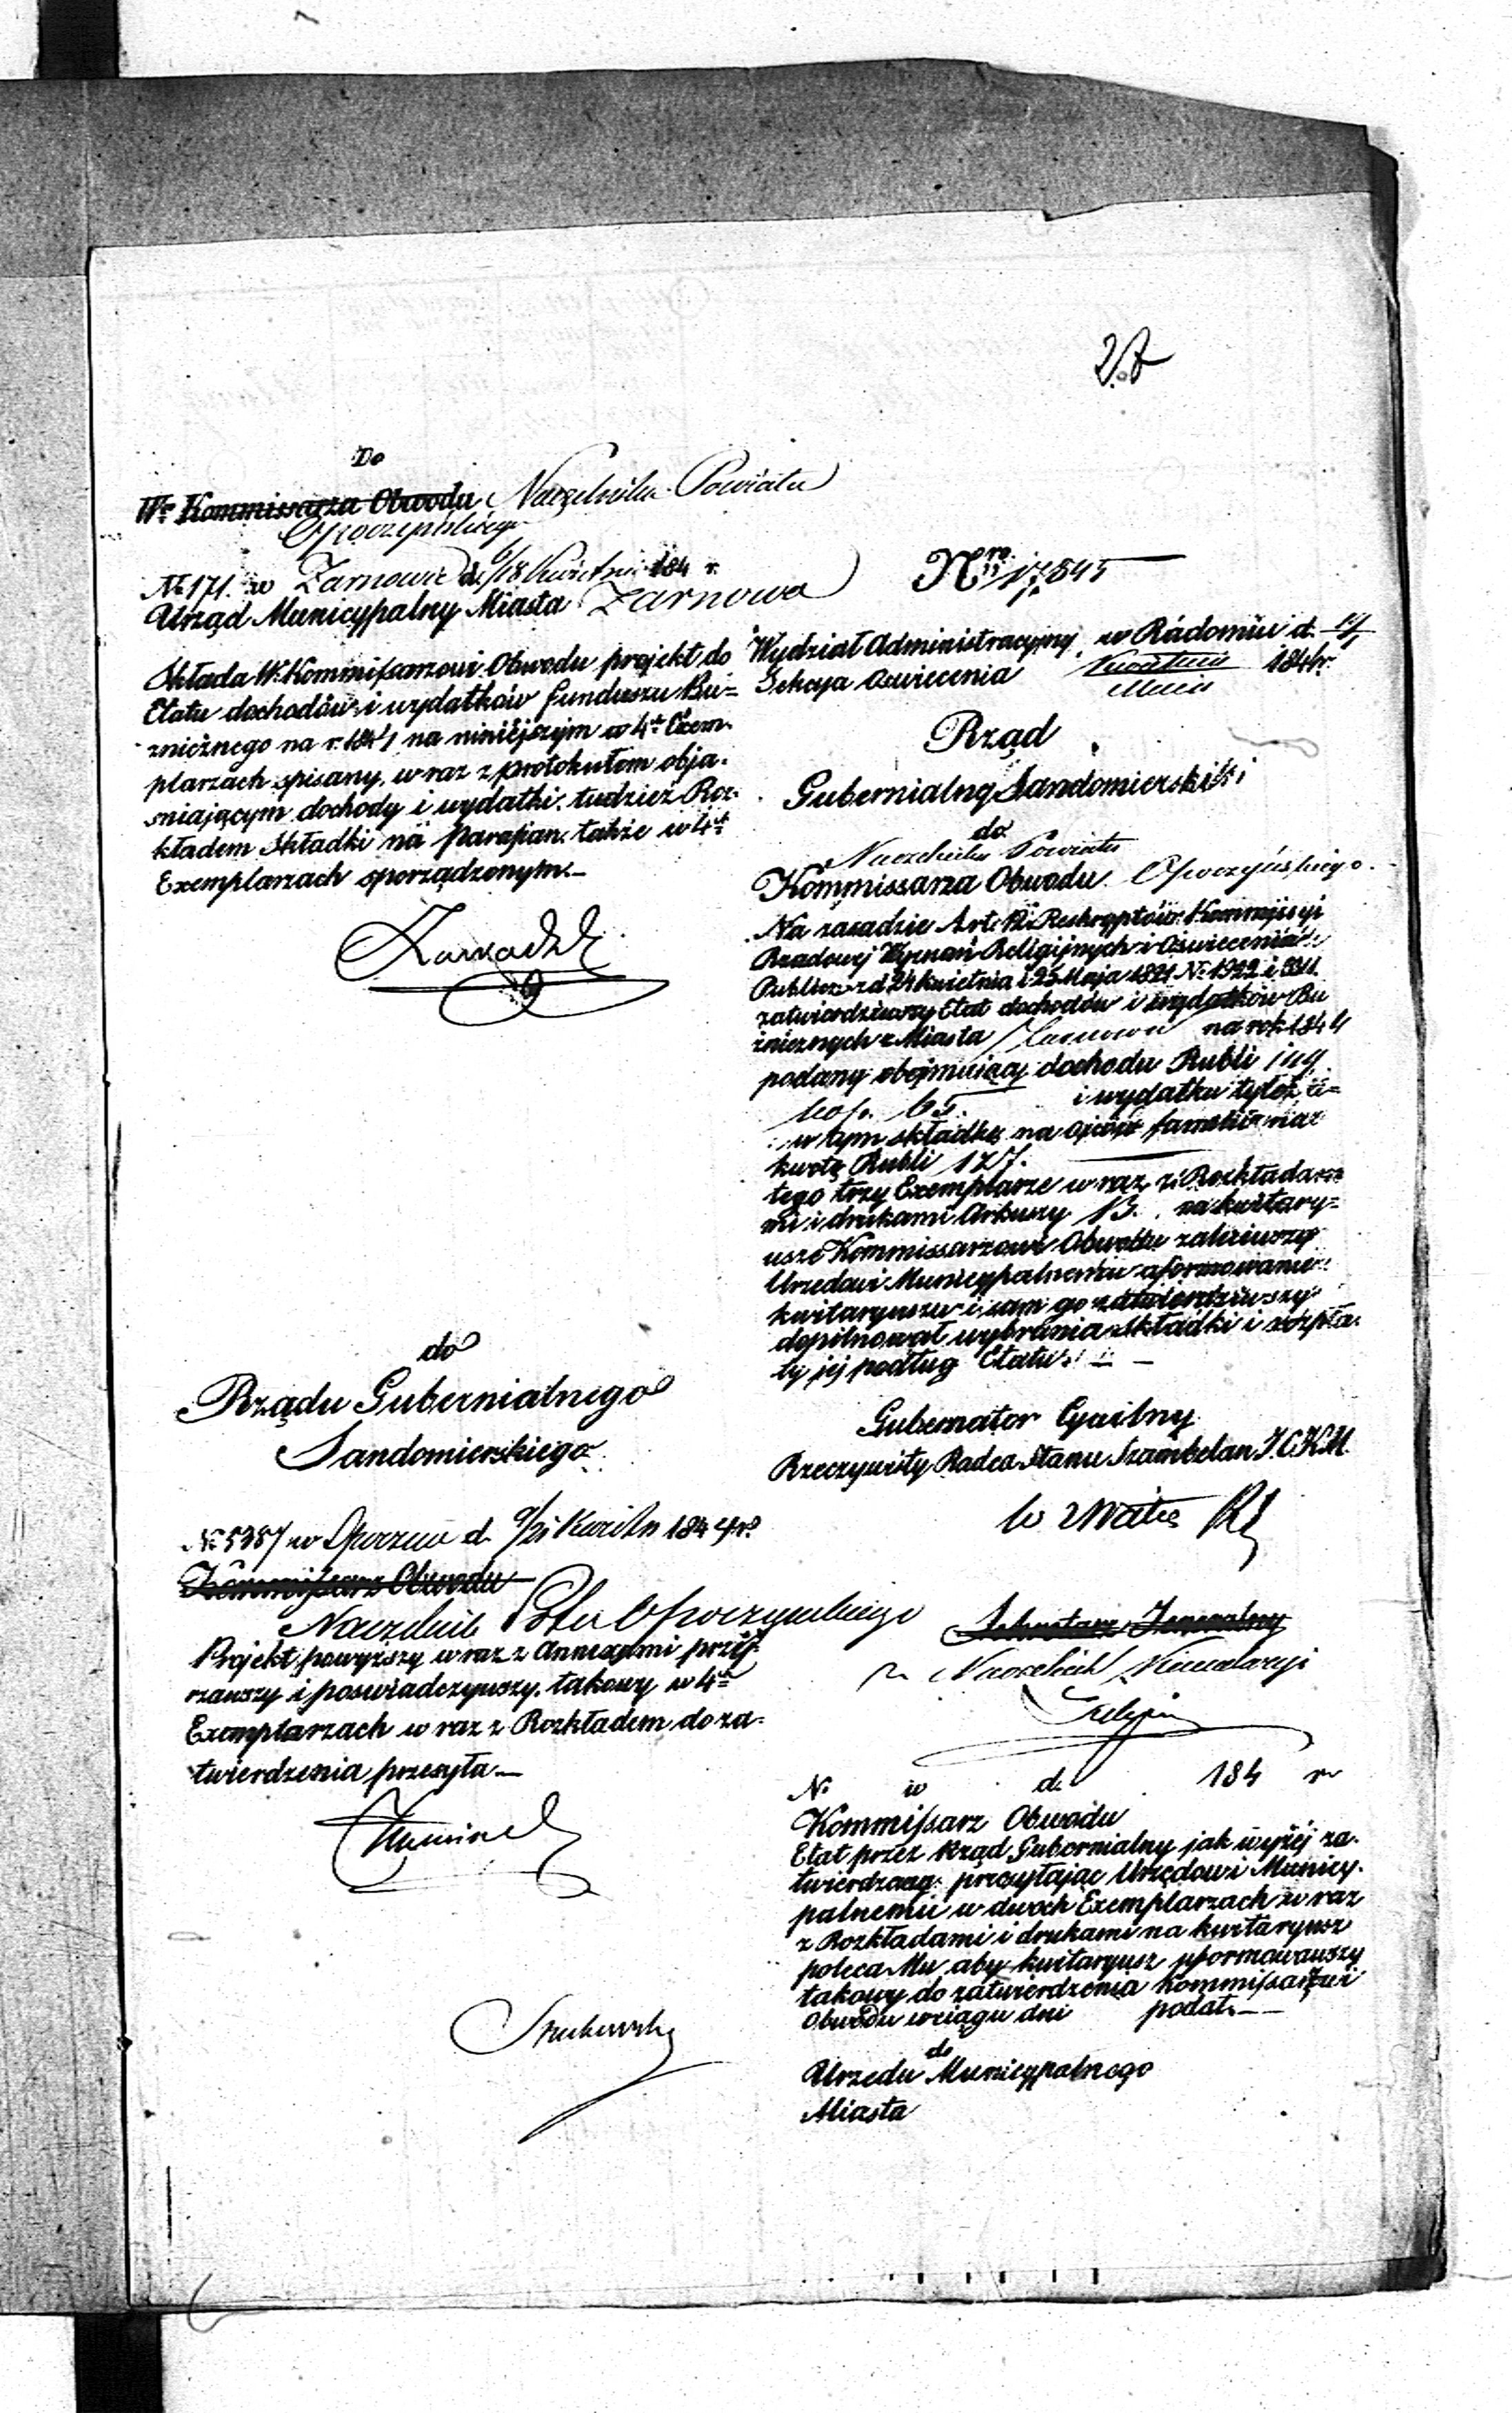 Do
Wo Kommissarza Obwodu Naczelnika Powiatu
Opoczyńskiego
No 171. w Żarnowie d. 6/18 Kwietnia 184 r.
Urząd Municypalny Miasta Żarnowa
Składa W. Kommissarzowi Obwodu projekt do
Etatu dochodów i wydatków funduszu Bu=
żnicznego na r. 1841 na niniejszym w 4ch Exem-
plarzach spisany, w raz z protokułem obja-
śniającym dochody i wydatki, tudzież Roz-
kładem Składki na Parafian, także w 4ch
Exemplarzach sporządzonym.—
do
Rządu Gubernialnego
Sandomierskiego
w Opocznie d. 9/21 Kwietn 1844 ro
Kommissarz Obwodu
Naczelnik Ptu Opoczyńskiego
Projekt powyższy w raz z Annexami przej-
rzawszy i poswiadczywszy, takowy w 4ch
Exemplarzach w raz z Rozkładem do za-
twierdzenia przesyła—
Nro
Wydział Administracyjny w Radomiu d.
Sekcya Oswiecenia Kwietnia 184 r.
Maia
Rząd
Gubernialny Sandomierski
do
Naczelnika Powiatu
Kommissarza Obwodu Opoczyńskiego.
Na zasadzie Art. Reskryptów Kommissyi
Rządowej Wyznań Religijnych i Oswiecenia
Publicz: z d. 24 kwietnia i 25 Maja 1821 No 1922 i
zatwierdziwszy Etat dochodów i wydatków Bu
żnicznych z Miasta Żarnowa na rok 1844
podany obejmujący dochodu Rubli
kop. 65. i wydatku tyleż, i=
w tym składkę na ojców familii na
kwotę Rubli
tego trzy Exemplarze w raz z Rozkłada
mi i drukami Arkuszy 13. na kwitary=
usze Kommissarzowi Obwodu zaleciwszy
Urzędowi Municypalnemu uformowanie
kwitaryuszu i sam go zatwierdziwszy
dopilnował wybrania składki i wypła-
ty jej podług Etatu. —
Gubernator Cywilny
Rzeczywisty Radca Stanu Szambelan J. C. K. M.
Sekretarz Jeneralny
Naczelnik Kancelaryi
No w d. 184 r.
Kommissarz Obwodu
Etat przez Rząd Gubernialny jak wyżej za-
twierdzony przesyłając Urzędowi Municy-
palnemu w dwóch Exemplarzach w raz
z Rozkładami i drukami na kwitaryusz
poleca Mu, aby kwitaryusz uformowawszy
takowy do zatwierdzenia Kommissarzowi
Obwodu w ciągu dni podał.—
do
Urzędu Municypalnego
Miasta